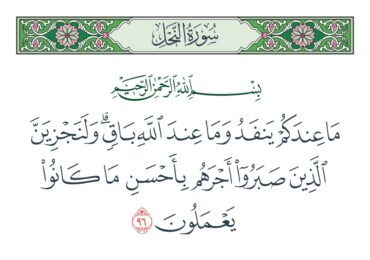 سُورَةُ النَّحْلِ
بِسْمِ اللَّهِ الرَّحْمَٰنِ الرَّحِيمِ
مَا عِندَكُمْ يَنفَدُ وَمَا عِندَ اللَّهِ بَاقٍ ۗ وَلَنَجْزِيَنَّ
الَّذِينَ صَبَرُوٓا۟ أَجْرَهُم بِأَحْسَنِ مَا كَانُوا۟
يَعْمَلُونَ ٩٦